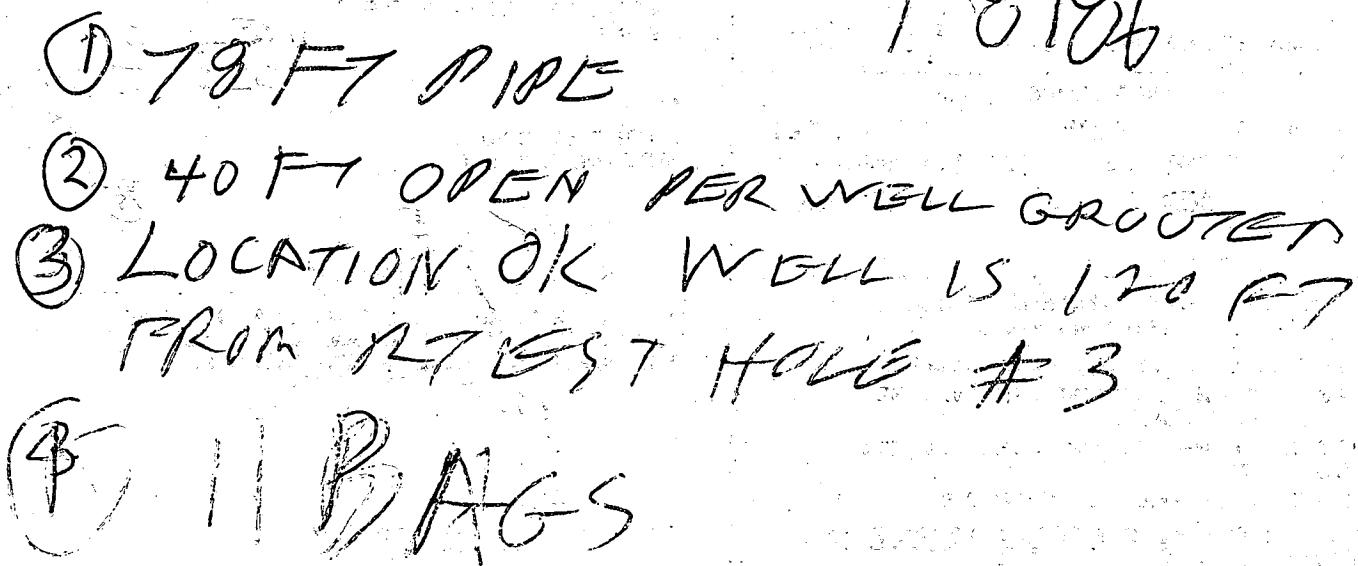 ① 78 FT PIPE
② 40 FT OPEN PER WELL GROUTED
③ LOCATION OK WELL IS 120 FT
FROM TEST HOLE #3
11 BAGS